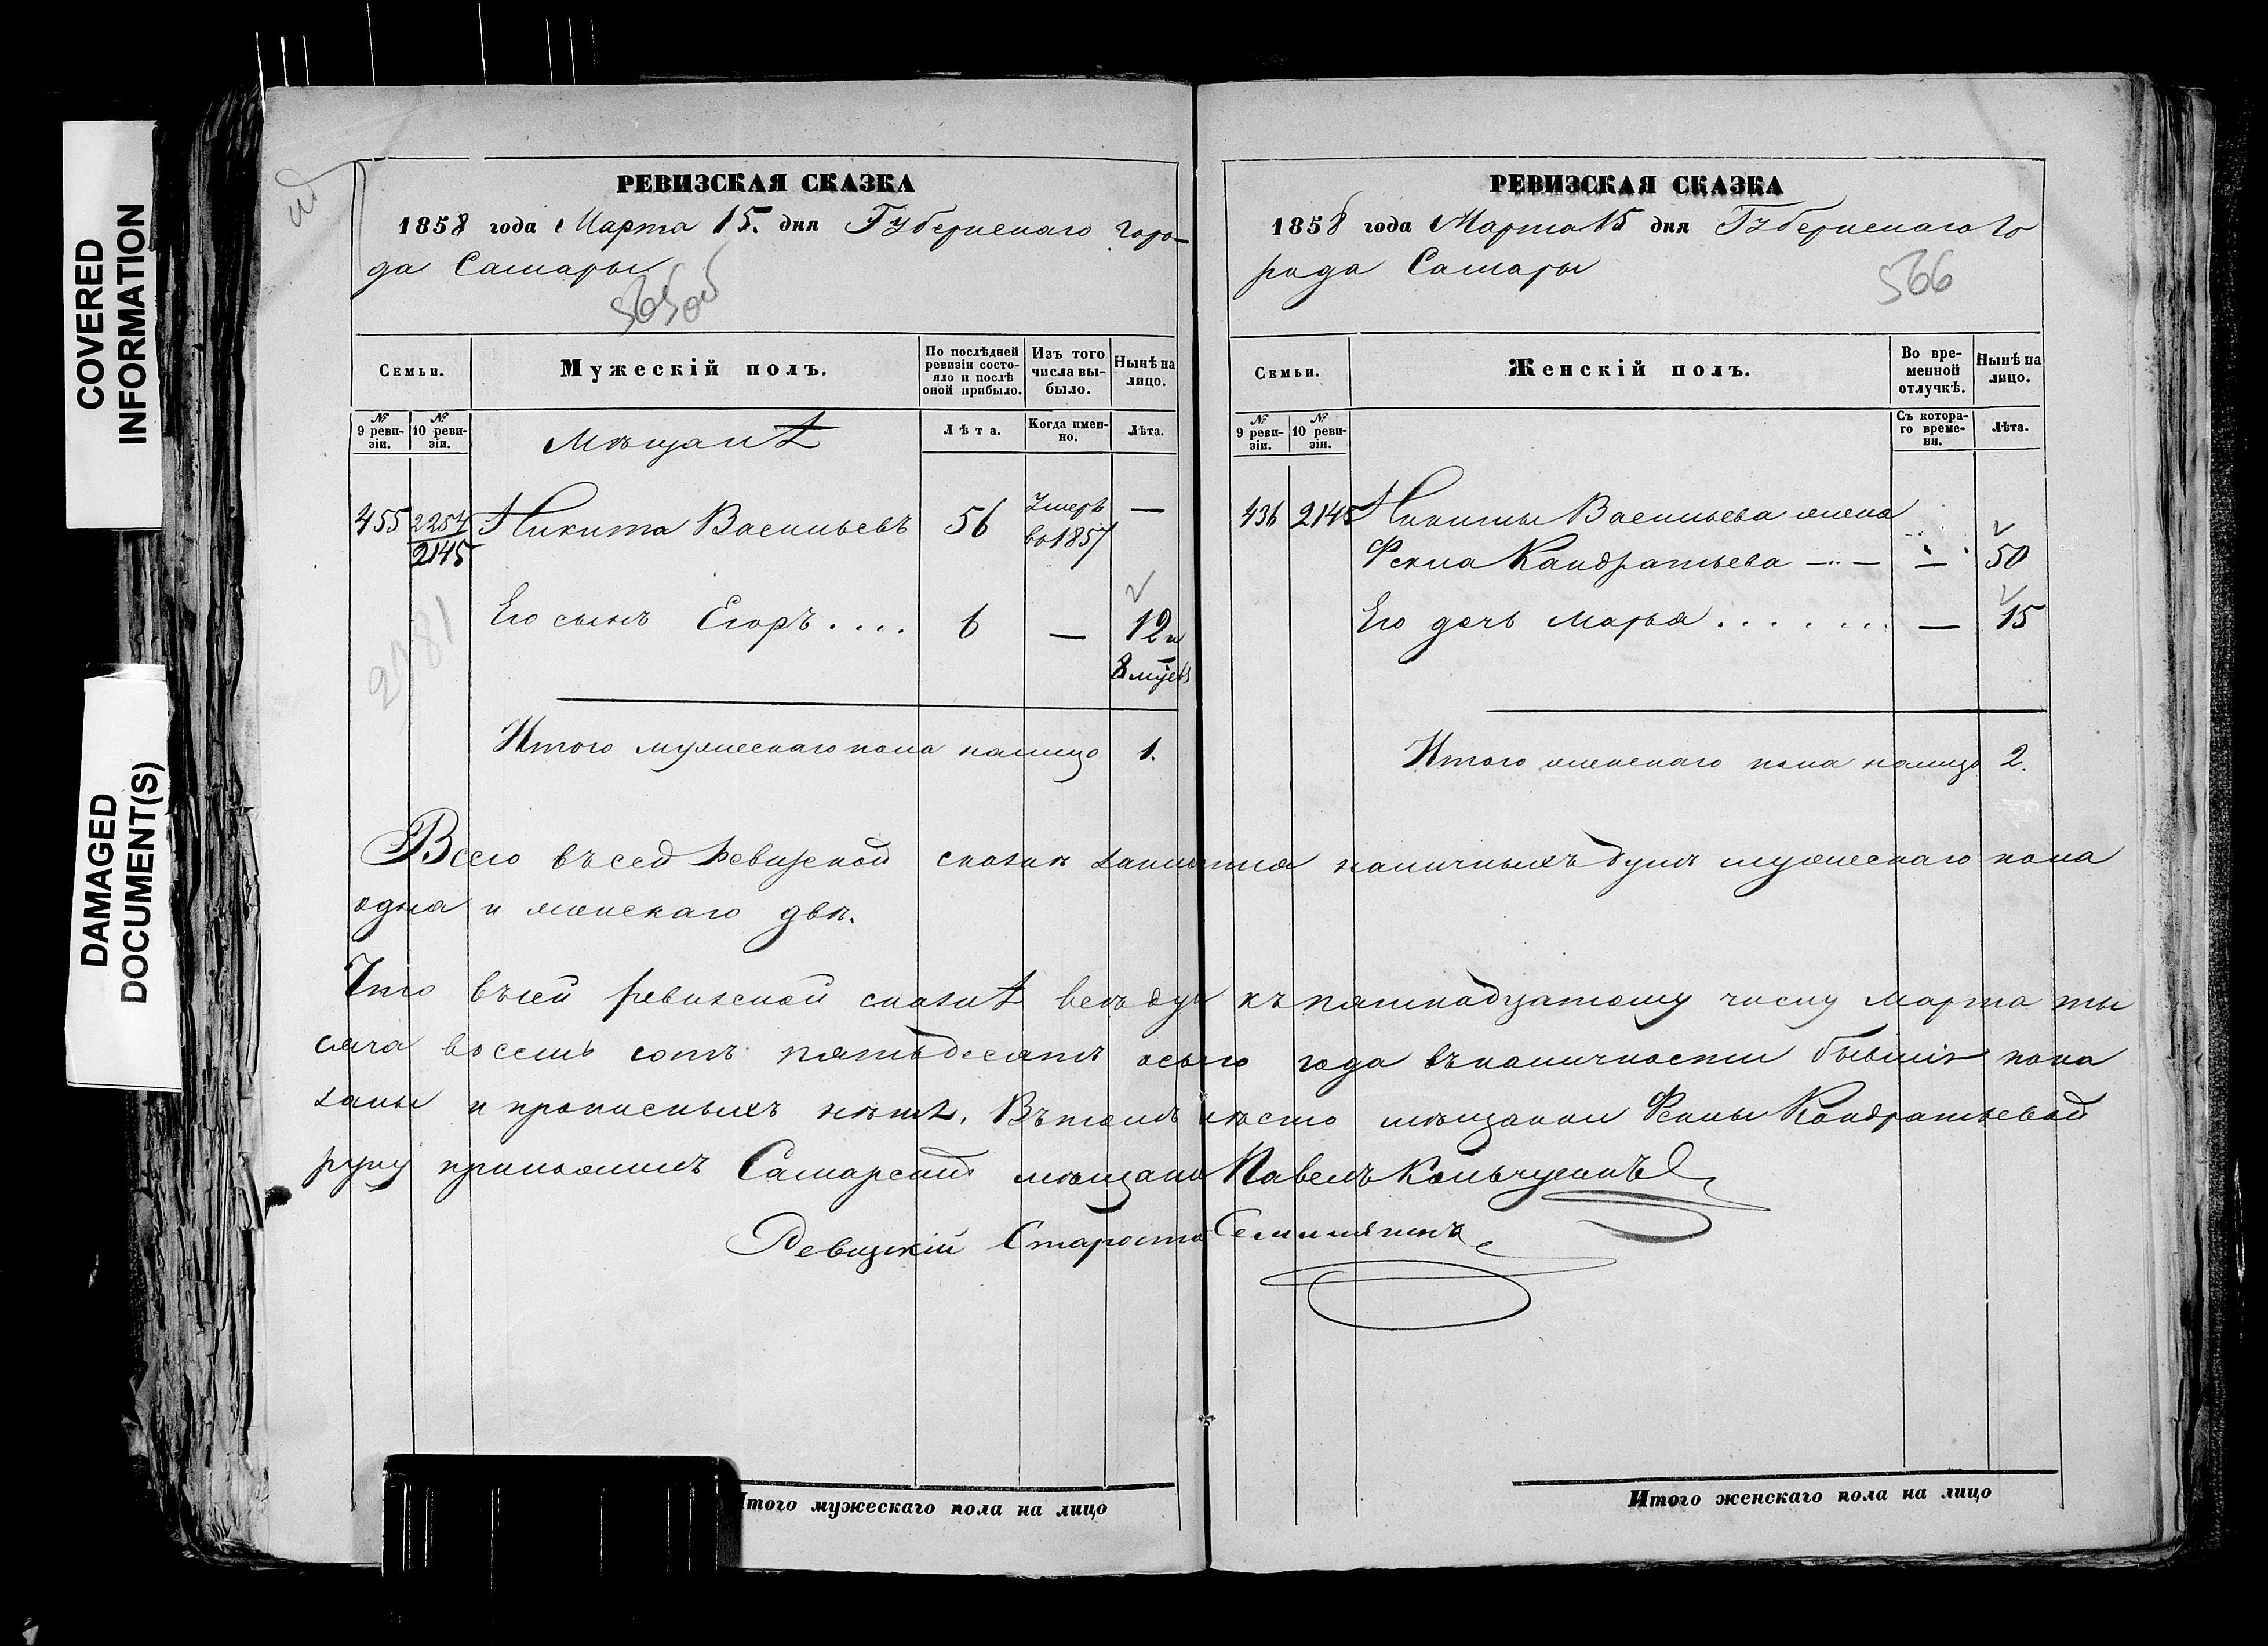 COVERED
INFORMATION
DAMAGED
DOCUMENT(S)
РЕВИЗСКАЯ СКАЗКА
1858 года Марта 15. дня Губернскаго горо-
да Самары
565об
Семьи.
Мужескій полъ.
По послѣдней ревизіи состояло и послѣ оной прибыло.
Изъ того числа выбыло.
Нынѣ на лицо.
№ 9 ревизіи.
№ 10 ревизіи.
Мѣщанѣ
Лѣта.
Когда именно.
Лѣта.
455 2254 Никита Васильевъ 56 Умеръ —
2145 во 1857
Его сынъ Егоръ.... 6 — 12 и
8 мѣс
2181
Итого мужескаго пола налицо 1.
РЕВИЗСКАЯ СКАЗКА
1858 года Марта 15 дня Губернскаго го
рода Самары
566
Семьи.
Женскій полъ.
Во временной отлучкѣ.
Нынѣ на лицо.
№ 9 ревизіи.
№ 10 ревизіи.
Съ котораго времени.
Лѣта.
436 2145 Никиты Васильева жена
Фекла Кандратьева — — — 50
Его дочь Марья....... — 15
Итого женскаго пола налицо 2.
Всего въ сей ревизской сказкѣ наличныхъ душъ мужескаго пола
одна и женскаго двѣ.
Что въ сей ревизской сказкѣ всѣ души къ пятнадцатому числу Марта ты
сяча восемь сотъ пятьдесятъ осьмо года въ наличности бывшія пока
заны и прописныхъ нѣтъ. Въ томъ вмѣсто мѣщанки Феклы Кондратьевой
руку приложилъ Самарский мѣщанинъ Павелъ
Ревизкій Староста
Итого мужескаго пола на лицо
Итого женскаго пола на лицо